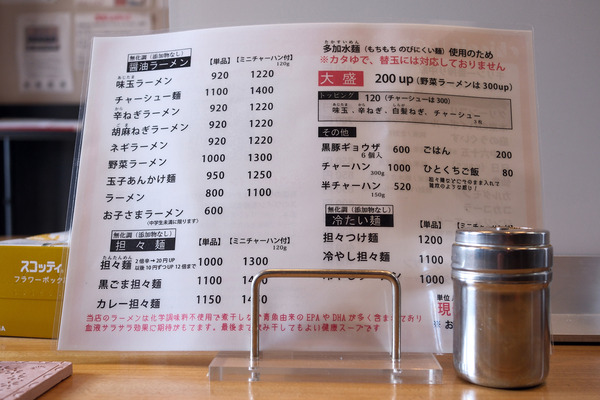 無化調（添加物なし）
醤油ラーメン 【単品】 【ミニチャーハン付】
120g
味玉ラーメン 920 1220
チャーシュー麺 1100 1400
辛ねぎラーメン 920 1220
胡麻ねぎラーメン 920 1220
ネギラーメン 920 1220
野菜ラーメン 1000 1300
玉子あんかけ麺 950 1250
ラーメン 800 1100
お子さまラーメン 600
（中学生未満に限ります）
無化調（添加物なし）
担々麺 【単品】 【ミニチャーハン付】
120g
たんたんめん
担々麺 2倍辛→20円UP 以後10円ずつUP 12倍まで 1000 1300
黒ごま担々麺 1100
カレー担々麺 1150
当店のラーメンは化学調味料不使用で煮干しなど青魚由来のEPAやDHAが多く含まれており
血液サラサラ効果に期待がもてます。最後まで飲み干してもよい健康スープです
たかすいめん
多加水麺（もちもち のびにくい麺）使用のため
※カタゆで、替玉には対応しておりません
大盛 200 up（野菜ラーメンは300up）
トッピング 120（チャーシューは300）
味玉、辛ねぎ、白髪ねぎ、チャーシュー
その他
黒豚ギョウザ 600 ごはん 200
6個入
チャーハン 1000 ひとくちご飯 80
300g
半チャーハン 520
150g
無化調（添加物なし）
冷たい麺 【単品】
担々つけ麺 1200
冷やし担々麺 1100
単位
現
※ お
スコッティ
フラワーボックス